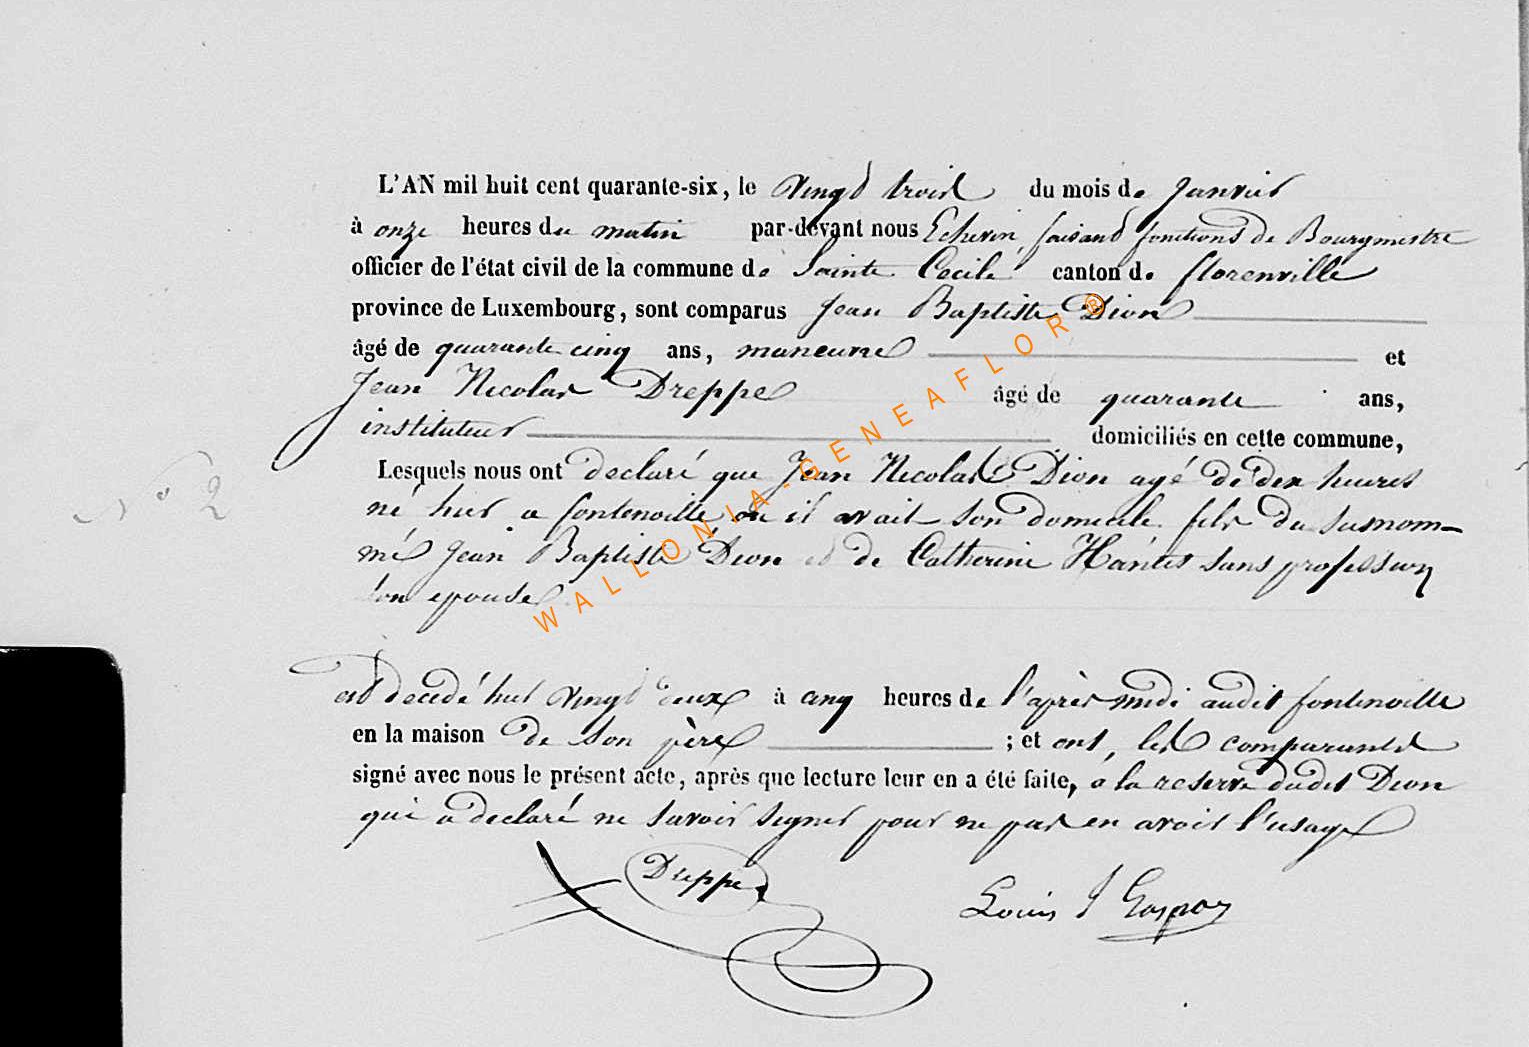 L'AN mil huit cent quarante-six, le vingt trois du mois de Janvier
à onze heures du matin par-devant nous Echevin, faisant fonctions de Bourgmestre
officier de l'état civil de la commune de Sainte Cecile canton de florenville
province de Luxembourg, sont comparus Jean Baptiste Dion
âgé de quarante cinq ans, maneuvre et
Jean Nicolas Dreppe âgé de quarante ans,
instituteur domiciliés en cette commune,
Lesquels nous ont declaré que Jean Nicolas Dion agé de dix heures
N° 2
né hier a fontenoille ou il avait son domicile fils du susnom-
mé Jean Baptiste Dion et de Catherine sans profession
son epouse
est decedé hier vingt deux à cinq heures de l'après midi audit fontenoille
en la maison de son père ; et ont, les comparants
signé avec nous le présent acte, après que lecture leur en a été faite, à la reserve dudit Dion
qui a declaré ne savoir signer pour ne pas en avoir l'usage
Dreppe
Louis J
WALLONIA-GENEAFLOR®